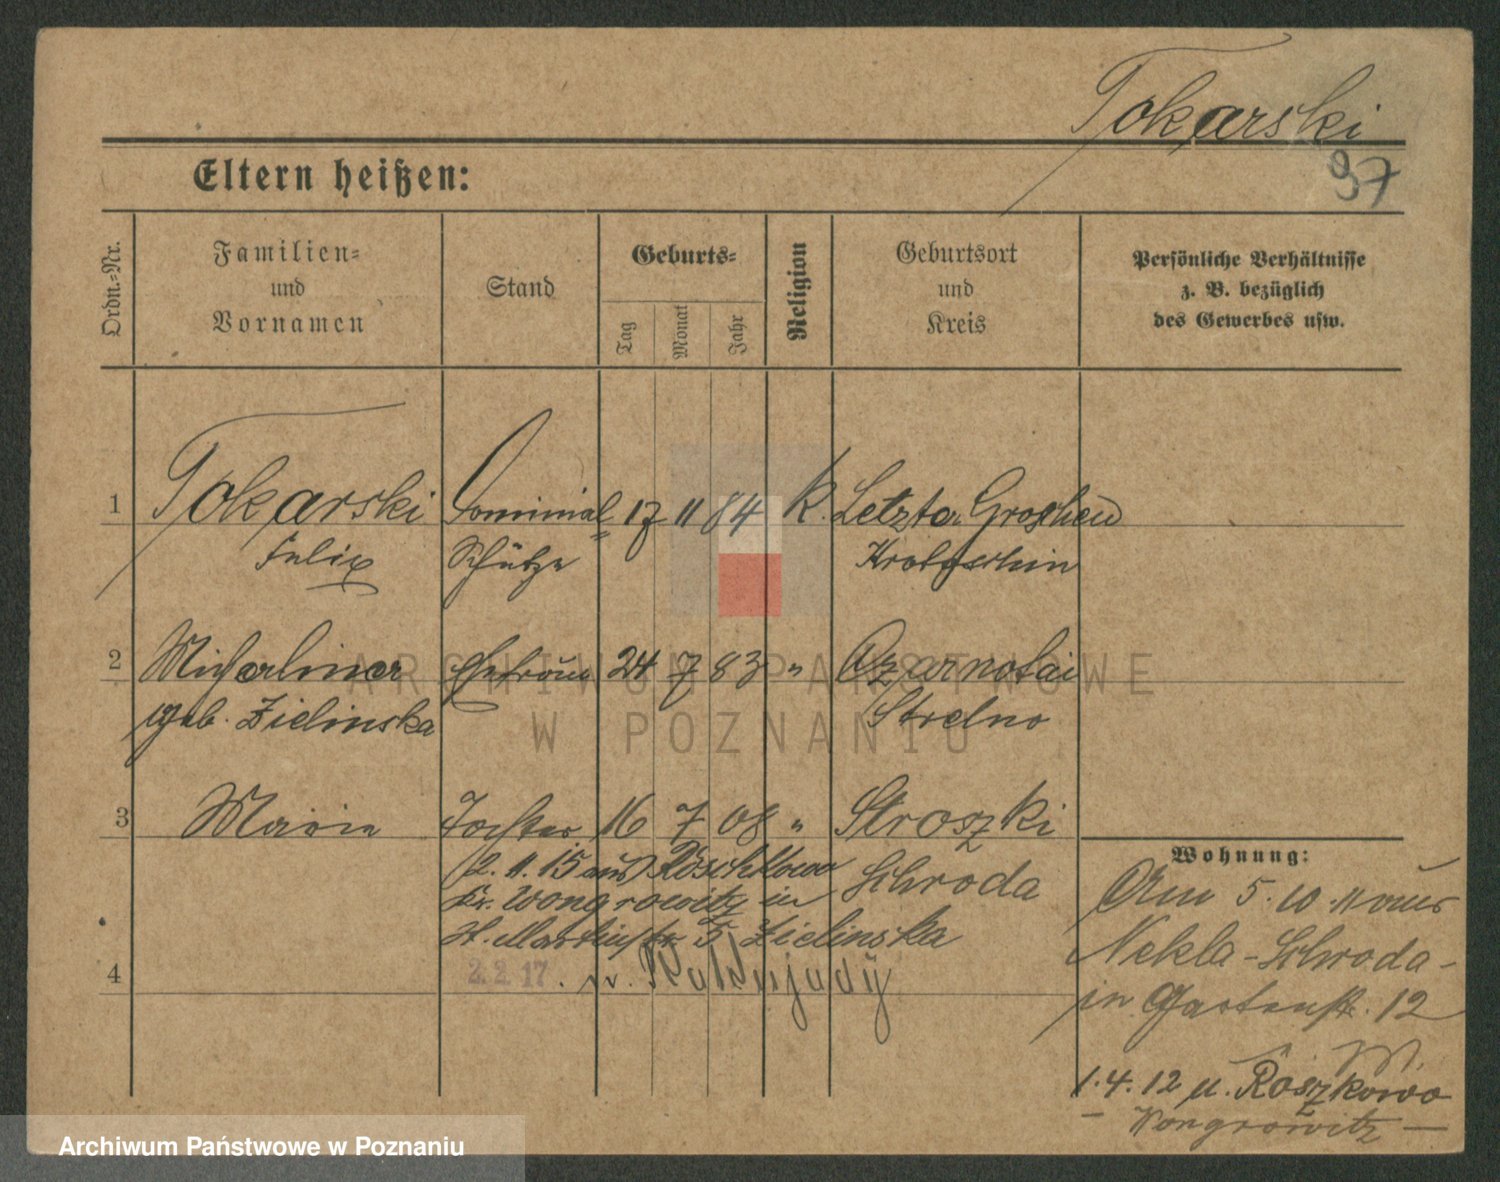 Tokarski
97
Eltern heißen:
Ordn.-Nr.
Familien-
und
Vornamen
Stand
Geburts-
Tag
Monat
Jahr
Religion
Geburtsort
und
Kreis
Persönliche Verhältnisse
z. B. bezüglich
des Gewerbes usw.
1 Tokarski Dominial- 17 11 84 K. Letzter Groschen
Felix Schütze Krotoschin
2 Ehefrau 24 7 83 " Czarnotai
geb. Zielinska Strelno
3 Marie Tochter 16 7 08 " Stroszki
Schroda
2. 11. 15 aus Roschkowo
Kr. Wongrowitz in
St. Martinstr. 5 Zielinska
4 2.2.17. n.
Wohnung:
Am 5. 10. 11 aus
Nekla - Schroda -
in Gartenstr. 12
1. 4. 12 n. Roszkowo
- Wongrowitz -
ARCHIWUM PAŃSTWOWE
W POZNANIU
Archiwum Państwowe w Poznaniu